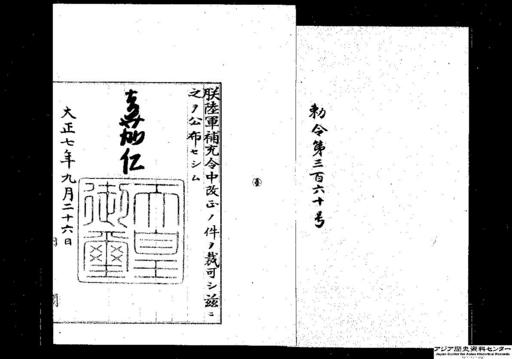 勅令第三百六十号
朕陸軍補充令中改正ノ件ヲ裁可シ茲ニ
之ヲ公布セシム
嘉仁
天皇御璽
大正七年九月二十六日
アジア歴史資料センター
Japan Center for Asian Historical Records